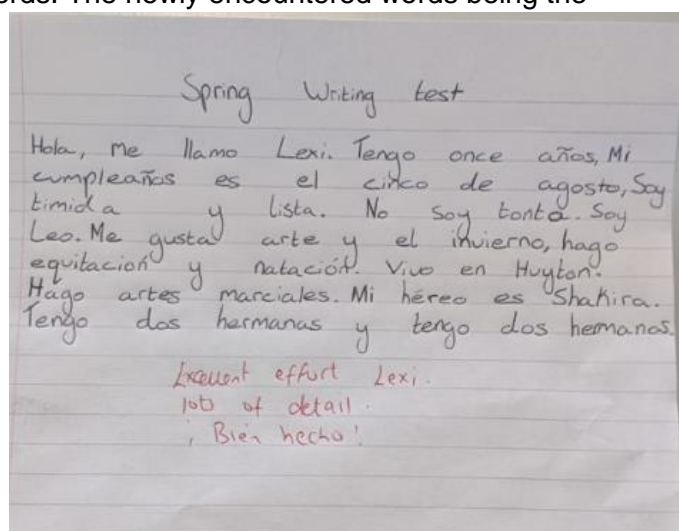 words. The newly encountered words being the
Spring Writing test
Hola, me llamo Lexi. Tengo once años, Mi
cumpleañas es el cinco de agosto, Soy
timida y lista. No soy tonta. Soy
Leo. Me gusta arte y el invierno, hago
equitacion y natación. Vivo en Huyton.
Hago artes marciales. Mi héreo es Shakira.
Tengo dos hermanas y tengo dos hemanos.
Excellent effort Lexi.
lots of detail.
¡Bien hecho!